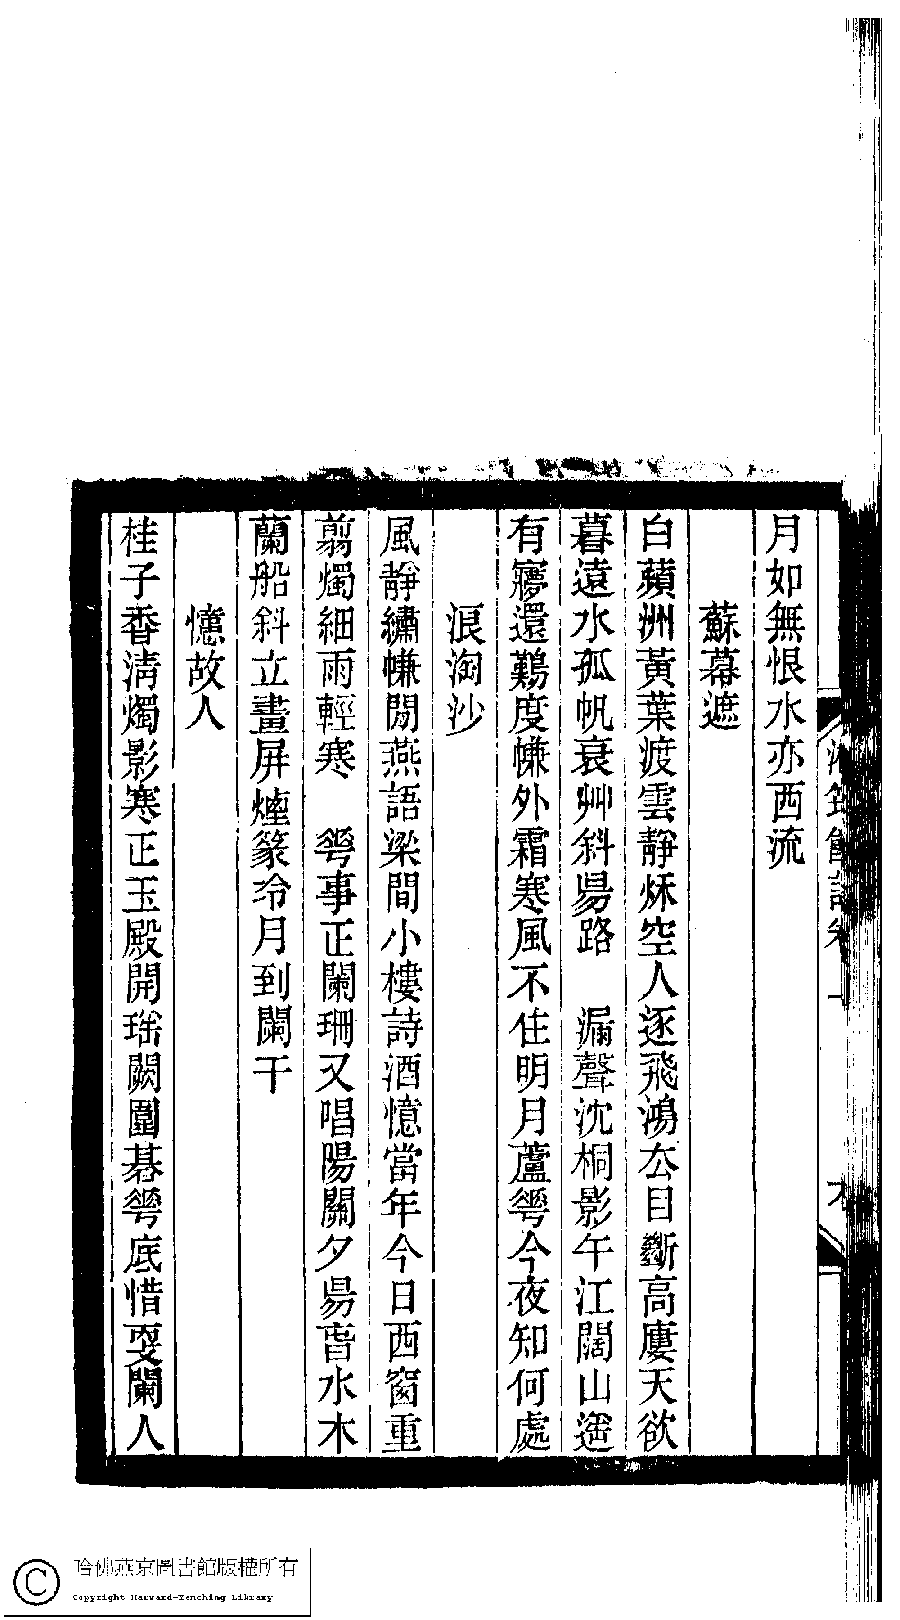 月如無恨水亦西流
蘇幕遮
白蘋洲黃葉渡雲靜秌空人逐飛鴻厺目斷高廔天欲
暮遠水孤帆衰艸斜昜路　漏聲沈桐影午江闊山遥
有寢還鷄度㡘外霜寒風不住明月蘆蕚今夜知何處
浪淘沙
風靜繡㡘閒燕語梁間小樓詩酒憶當年今日西窗重
翦燭細雨輕寒　蕚事正闌珊又唱陽關夕昜旹水木
蘭船斜立畫屏煙篆冷月到闌干
憶故人
桂子香清燭影寒正玉殿開瑤闕圍棊蕚底惜叓闌人
哈佛燕京圖書館版權所有
Copyright Harvard-Yenching Library